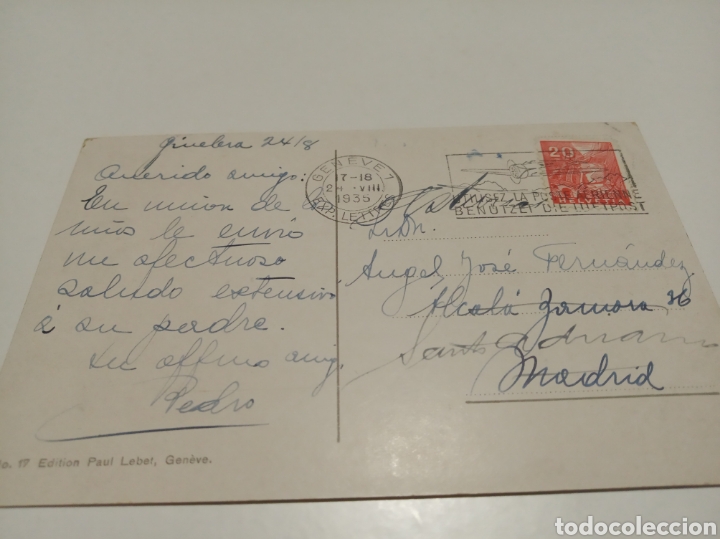 Ginebra 24/8
Querido amigo:
En union de
niño le envio
mi afectuoso
saludo extensivo
á su padre.
Su affmo amig.
Pedro
No. 17 Edition Paul Lebet, Genève.
GENÈVE 1
17-18
24.VIII
1935
EXP. LETTRES
UTILISEZ LA POSTE AÉRIENNE
BENÜTZET DIE LUFTPOST
20
Sr. Dn.
Angel José Fernández
Alcalá Zamora 26
Madrid
todocoleccion